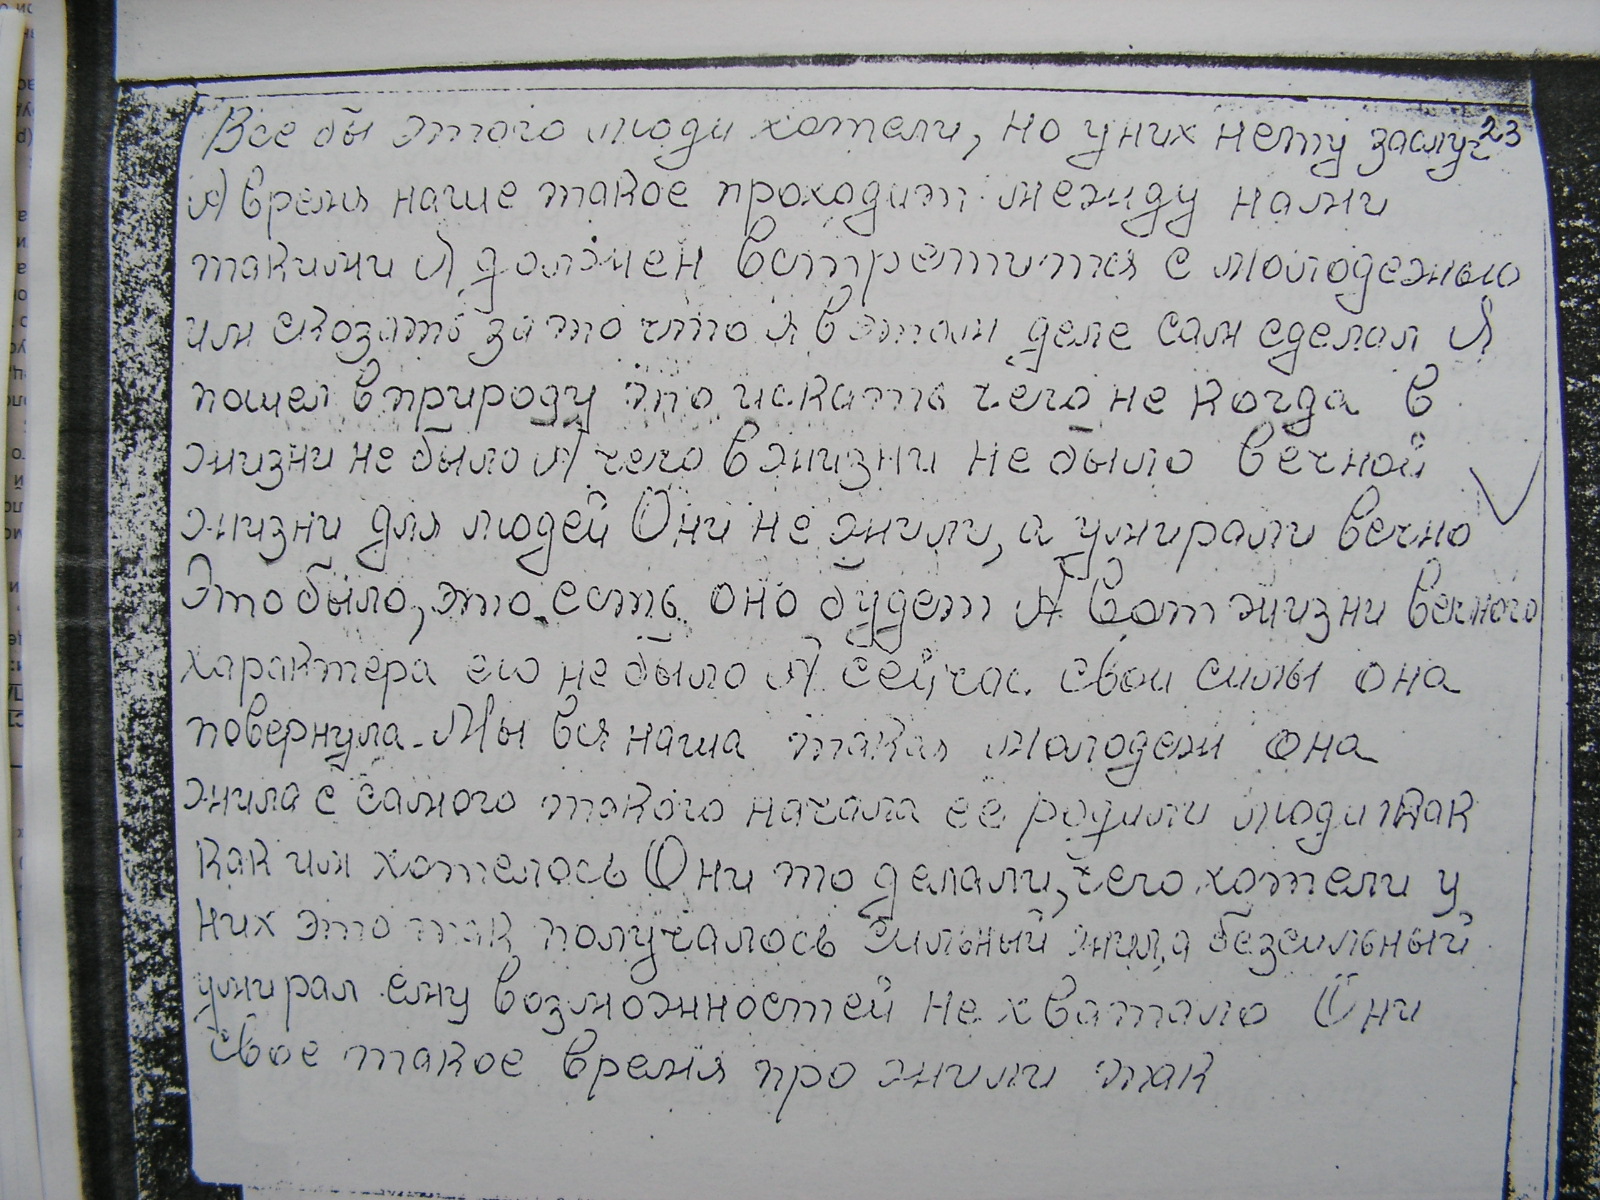 Все бы этого люди хотели, но у них нету заслуг 23
А время наше такое проходит между нами
такими Я должен встретится с молодежью
им сказать за то что я в этом деле сам сделал Я
пошел в природу это искать чего не когда в
жизни не было А чего в жизни не было вечной
жизни для людей Они не жили, а умирали вечно
Это было, это есть оно будет А вот жизни вечного
характера его не было А сейчас свои силы она
повернула. Мы вся наша такая молодеж она
жила с самого такого начала её родили люди так
как им хотелось Они то делали, чего хотели у
них это так получалось Сильный жил, а безсильный
умирал ему возможностей не хватало Они
свое такое время про жили так